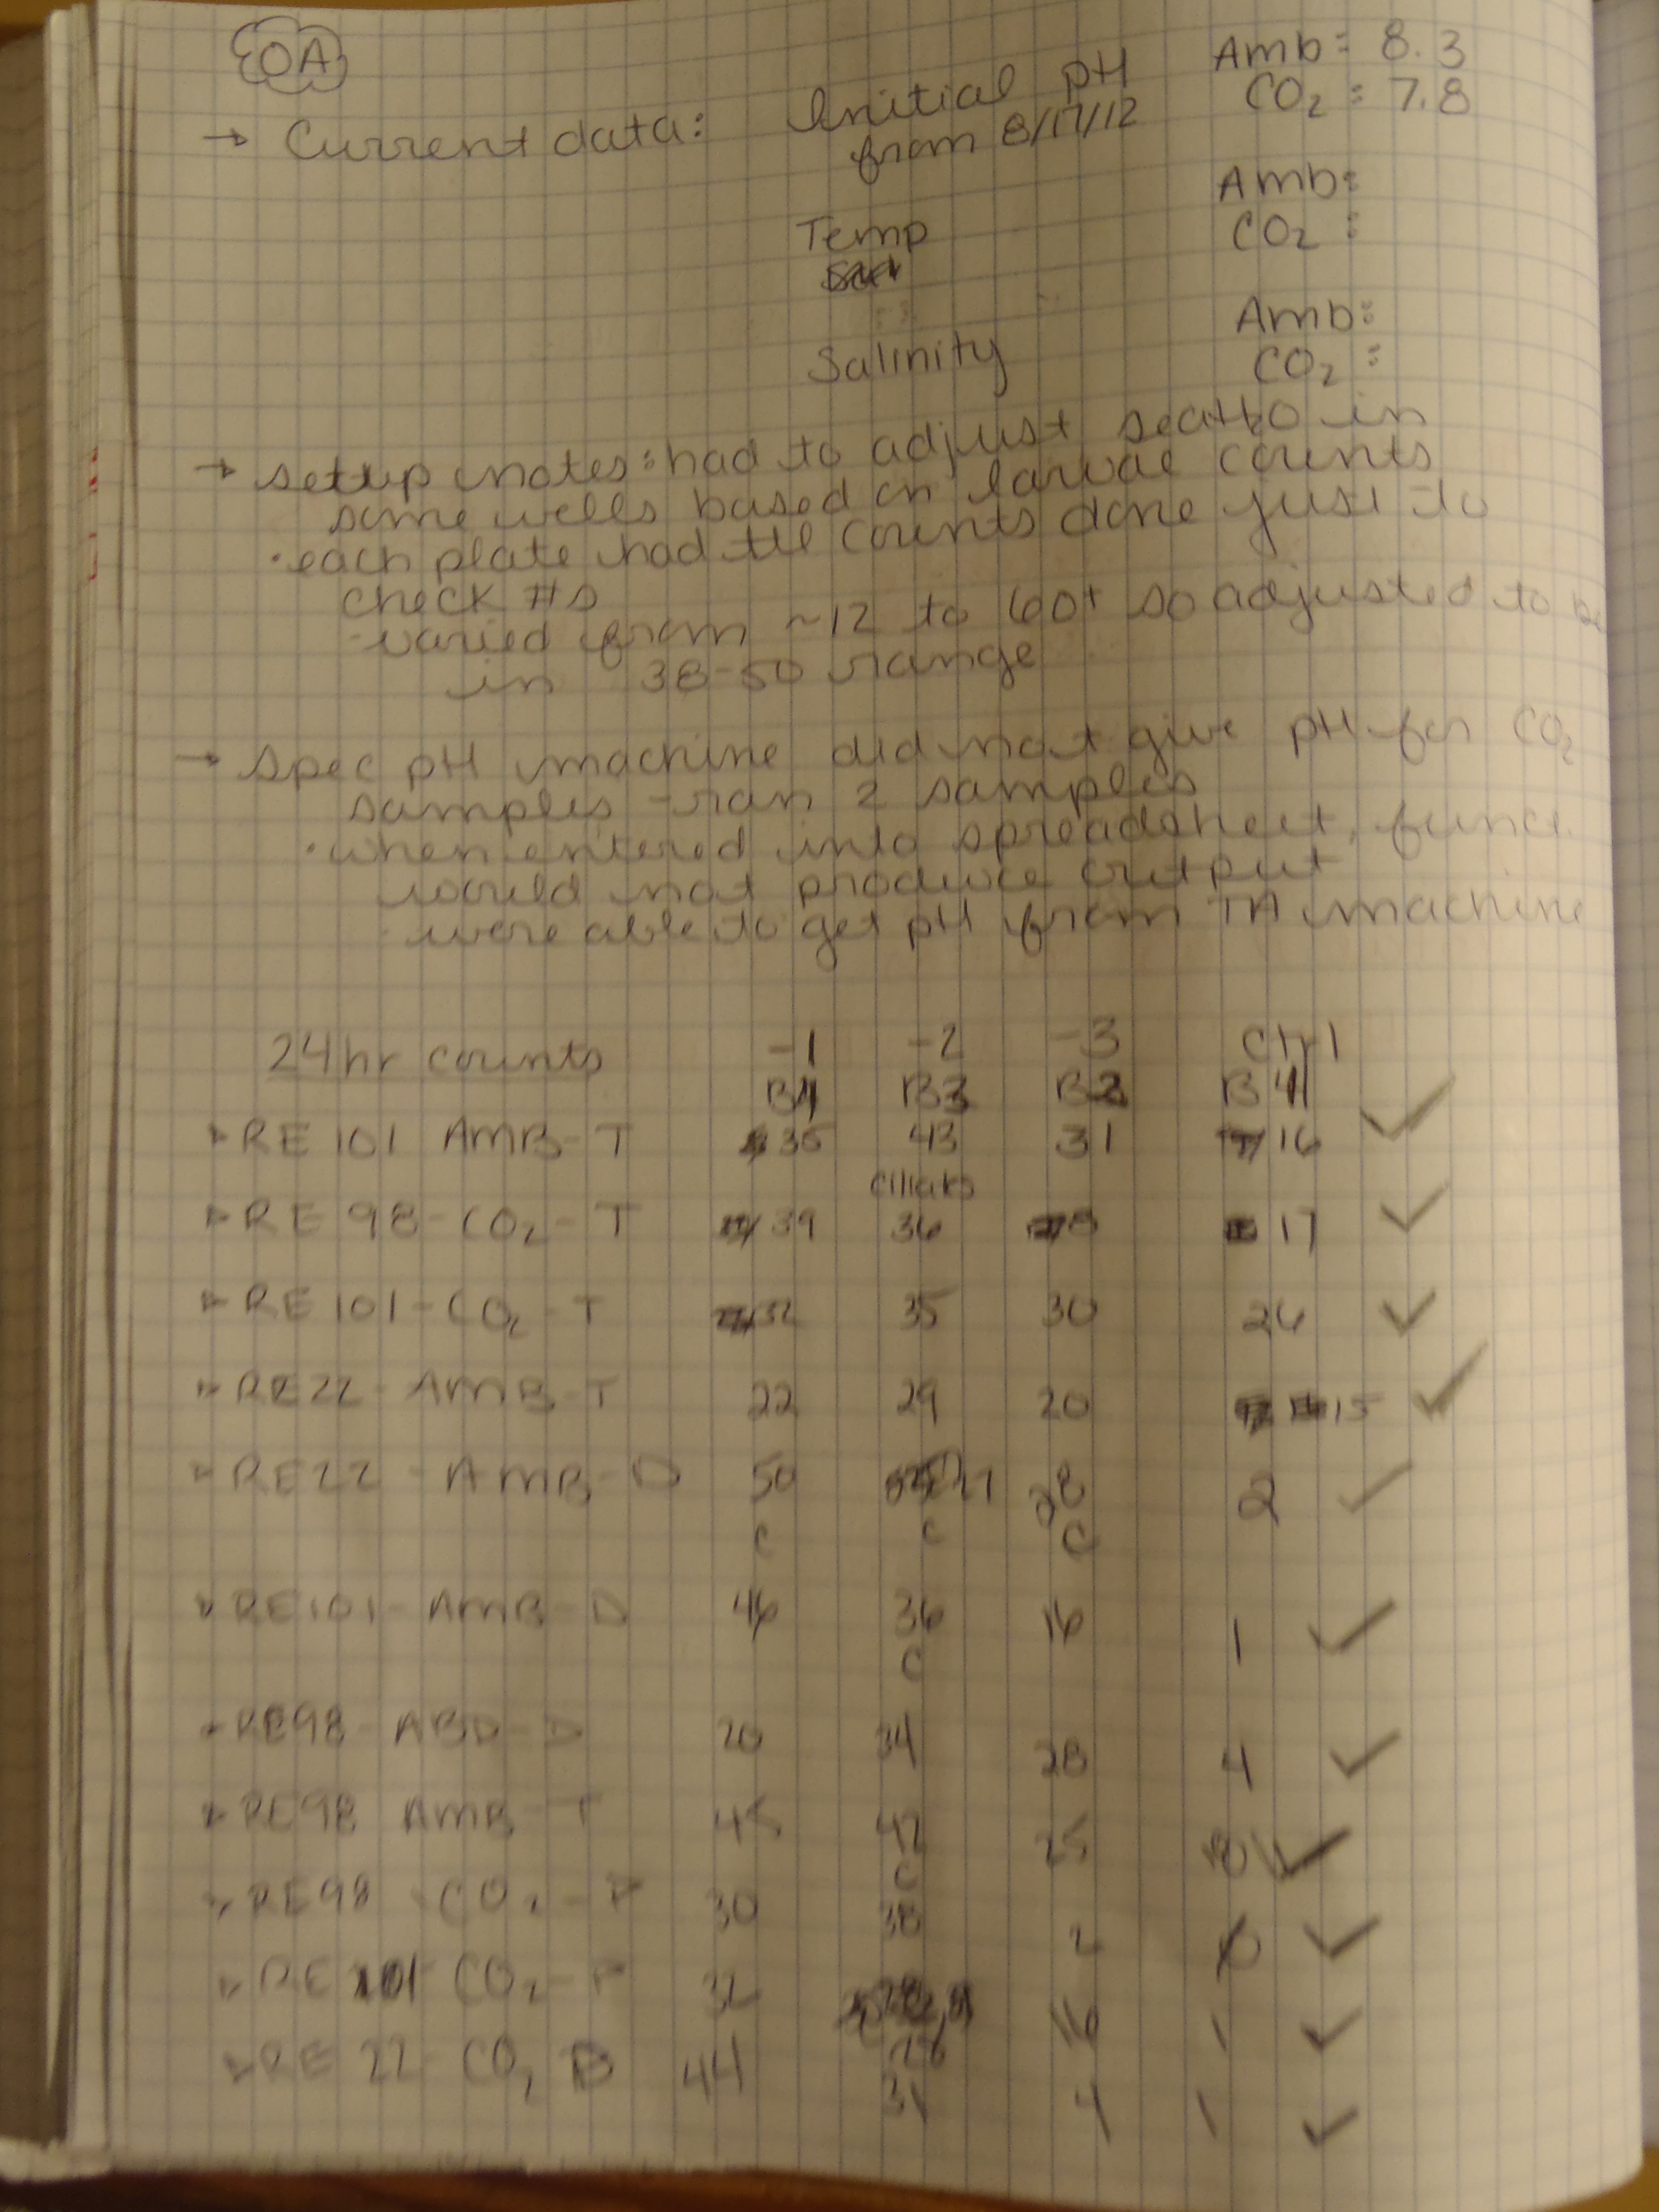 OA
→ Current data: Initial pH Amb: 8.3
from 8/17/12 CO₂: 7.8
Temp Amb:
CO₂:
Salinity Amb:
CO₂:
→ setup notes: had to adjust in
some wells based on larvae counts
· each plate had ttl counts done just to
check #s
- varied from ~12 to 60+ so adjusted to be
in 38-50 range
→ spec pH machine did not give pH for CO₂
samples - ran 2 samples
· when entered into spreadsheet, func.
would not produce output
· were able to get pH from TA machine
24hr counts -1 -2 -3 Ctrl
B1 B3 B2 B4
RE 101 AMB-T 35 43 31 16 ✓
ciliates
RE 98-CO₂-T 39 36 8 17 ✓
RE 101-CO₂-T 32 35 30 26 ✓
RE22-AMB-T 22 29 20 15 ✓
RE22-AMB-D 50 27 28 2 ✓
C C C
RE101-AMB-D 46 36 16 1 ✓
C
RE98-ABD-D 20 34 28 4 ✓
RE98 AMB-T 45 42 25 ✓
C
RE98-CO₂- 30 38 2 0 ✓
RE 101-CO₂- 32 16 1 ✓
28
RE 22-CO₂ 44 31 4 1 ✓